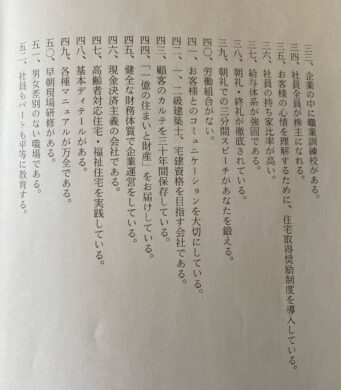 三三、企業の中に職業訓練校がある。
三四、社員全員が株主になれる。
三五、お客様の心情を理解するために、住宅取得奨励制度を導入している。
三六、社員の持ち家比率が高い。
三七、給与体系が強固である。
三八、朝礼・終礼が徹底されている。
三九、朝礼での三分間スピーチがあなたを鍛える。
四〇、労働組合がない。
四一、お客様とのコミュニケーションを大切にしている。
四二、一、二級建築士、宅建資格を目指す会社である。
四三、顧客のカルテを三十年間保存している。
四四、「一億の住まいと財産」をお届けしている。
四五、健全な財務体質で企業運営をしている。
四六、現金決済主義の会社である。
四七、高齢者対応住宅・福祉住宅を実践している。
四八、基本ディテールがある。
四九、各種マニュアルが万全である。
五〇、早朝現場研修がある。
五一、男女差別のない職場である。
五二、社員もパートも平等に教育する。